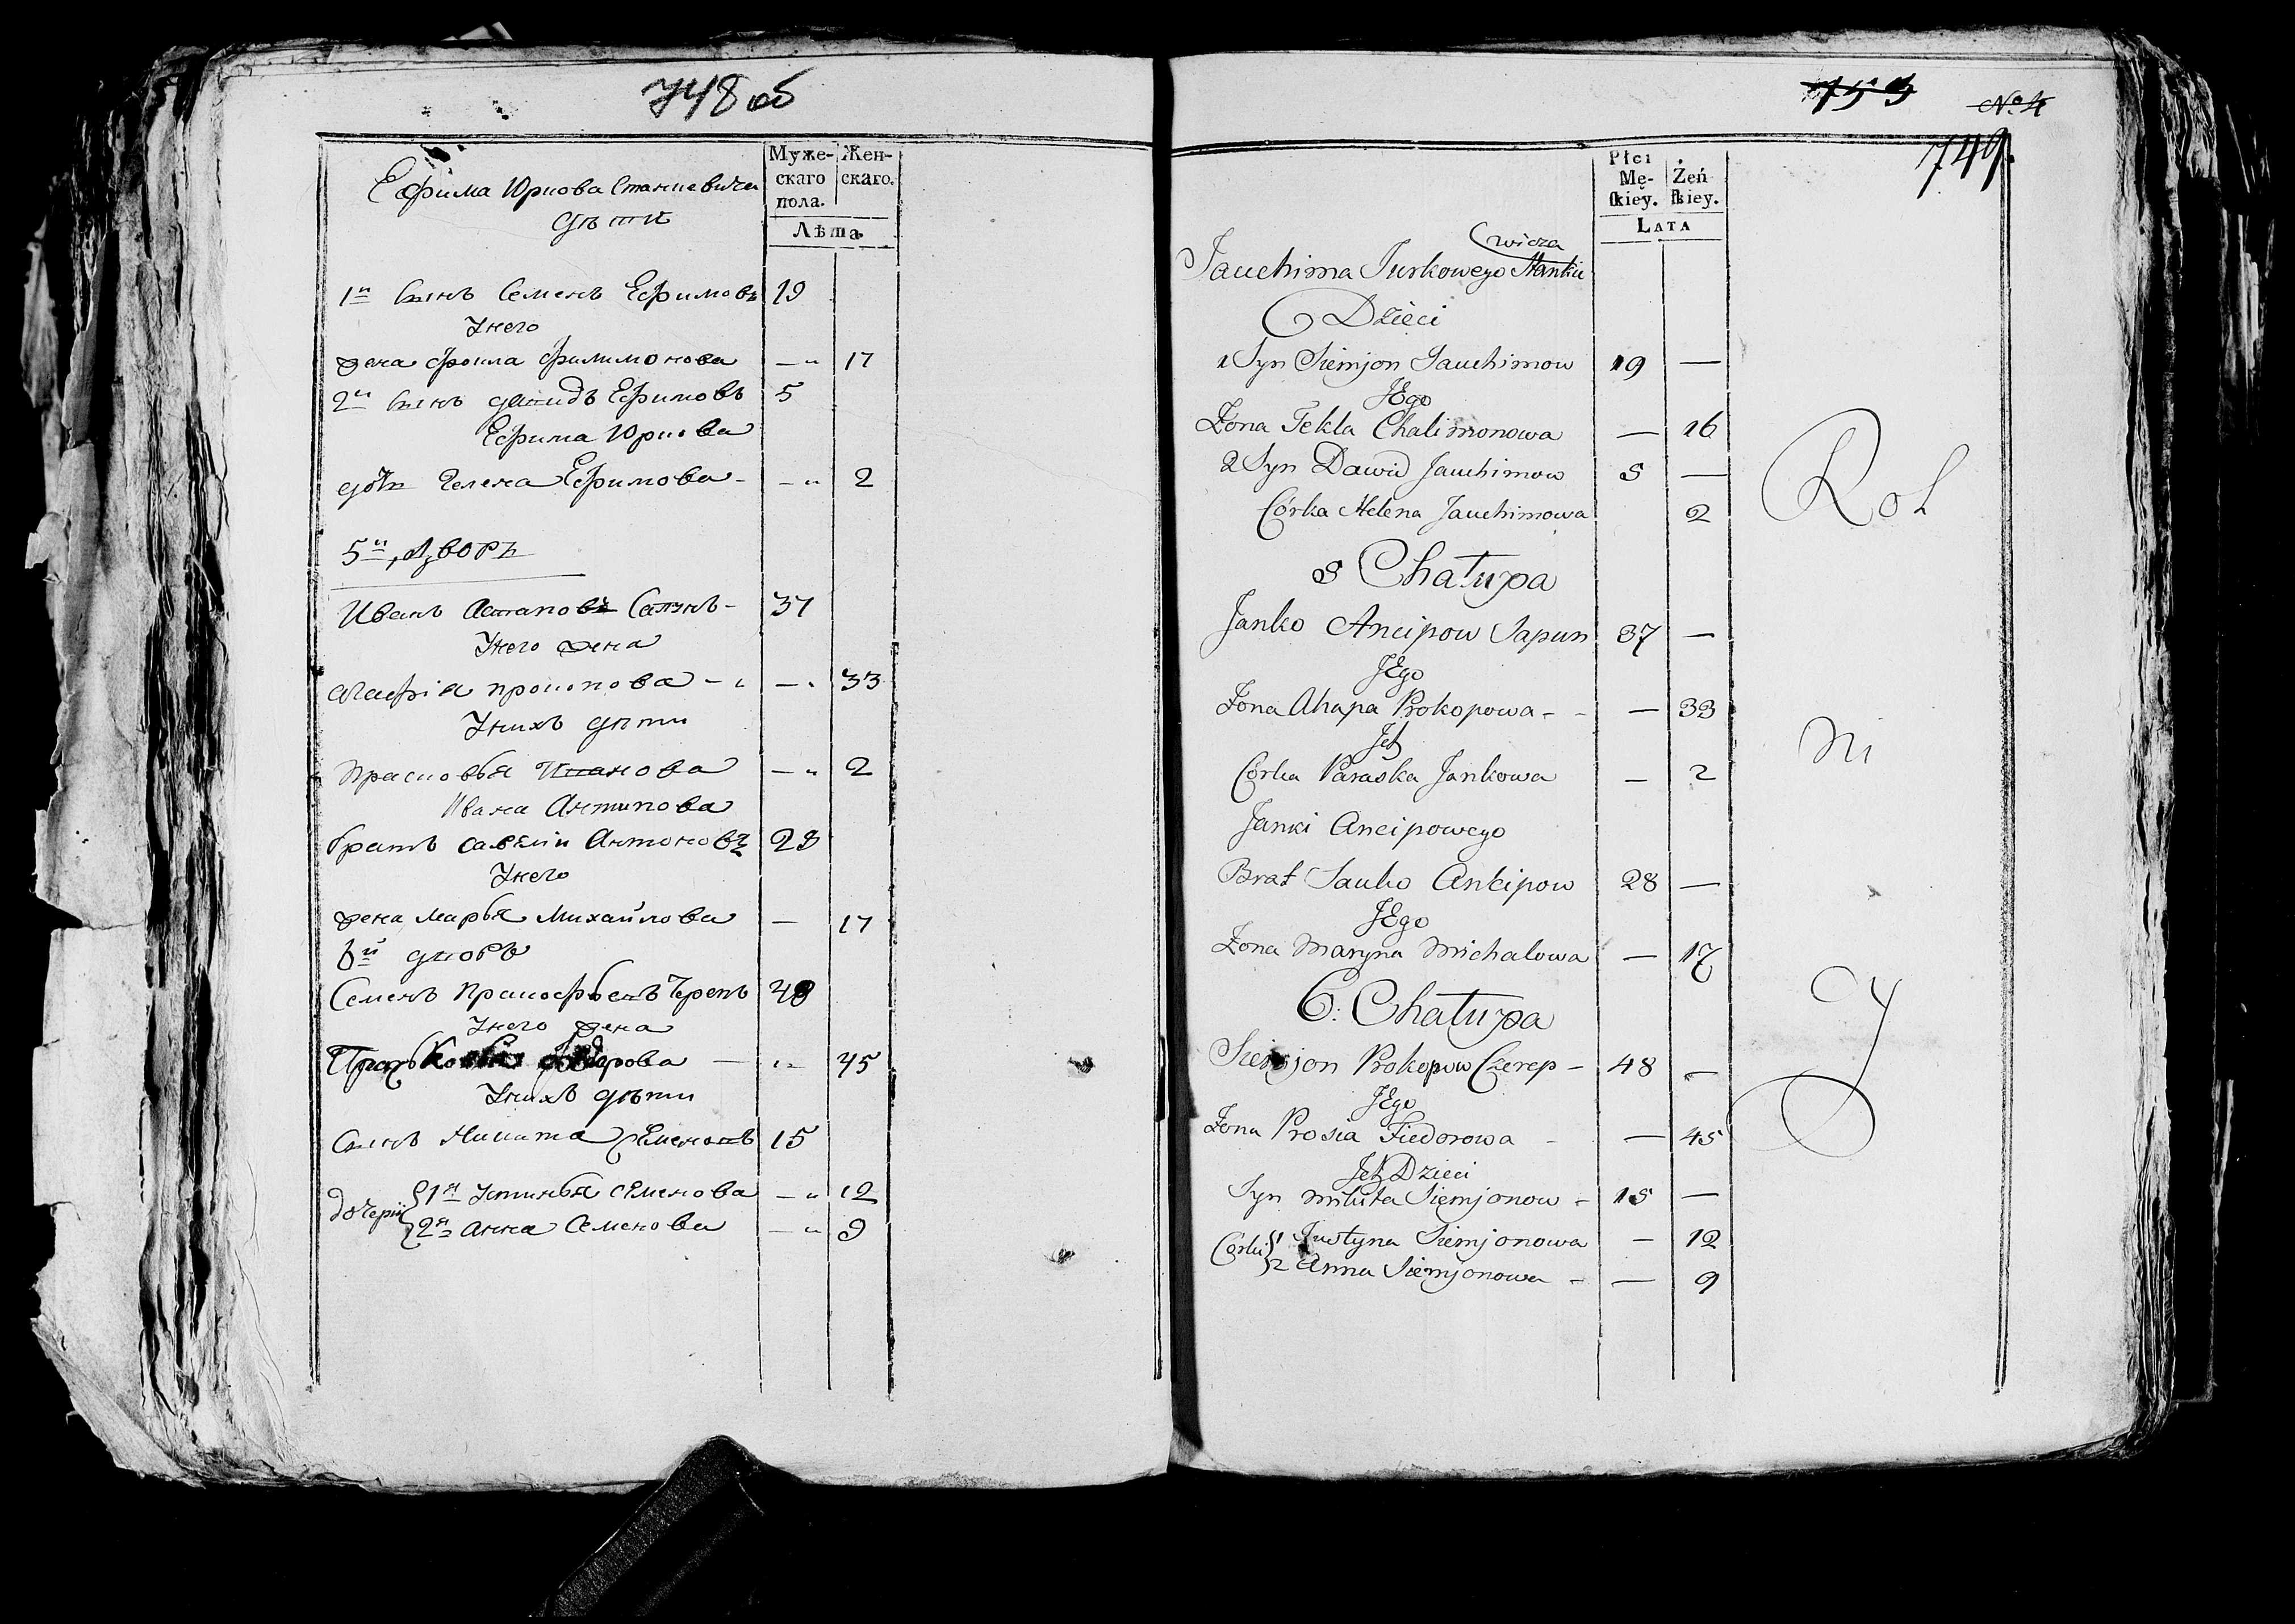 748 об
Муже-
скаго
пола.
Жен-
скаго.
Лѣта
Ефима Юркова Станкевича
дѣти
1й Сынъ Семенъ Ефимовъ 19
У него
жена Филимонова — 17
2й Сынъ Давидъ Ефимовъ 5
Ефима Юркова
дочь Гелена Ефимова — 2
5й Дворъ
Иванъ Сапунъ 37
У него жена
Агафія Прокопова — 33
У нихъ дѣти
Прасковья — 2
Ивана Антипова
братъ Савелій Антоновъ 28
У него
жена Марья Михайлова — 17
6й дворъ
Семенъ Прокофьевъ Черепъ 48
У него жена
— 45
У нихъ дѣти
Сынъ Никита Семеновъ 15
дочери 1я Устинья Семенова — 12
2я Анна Семенова — 9
753
No 4
749.
Płci
Mę-
skiey.
Żeń
skiey.
LATA
wicza
Jauchima Jurkowego Stankie
Dzieci
1 Syn Siemjon Jauchimow 19 —
JEgo
Żona Tekla Chalimonowa — 16
2 Syn Dawid Jauchimow 5 —
Córka Helena Jauchimowa 2
5 Chałupa
Janko Ancipow Sapun 37 —
JEgo
Żona Ahapa Prokopowa — 33
Ich
Córka Paraska Jankowa — 2
Janki Ancipowego
Brat Sauko Ancipow 28 —
JEgo
Żona Maryna Michalowa — 17
6: Chałupa
Siemjon Prokopow Czerep 48 —
JEgo
Żona Prosia Fiedorowa — 45
Ich Dzieci
Syn Mikita Siemjonow 15 —
Córki 1 Justyna Siemjonowa — 12
2 Anna Siemjonowa — 9
Rol
ni